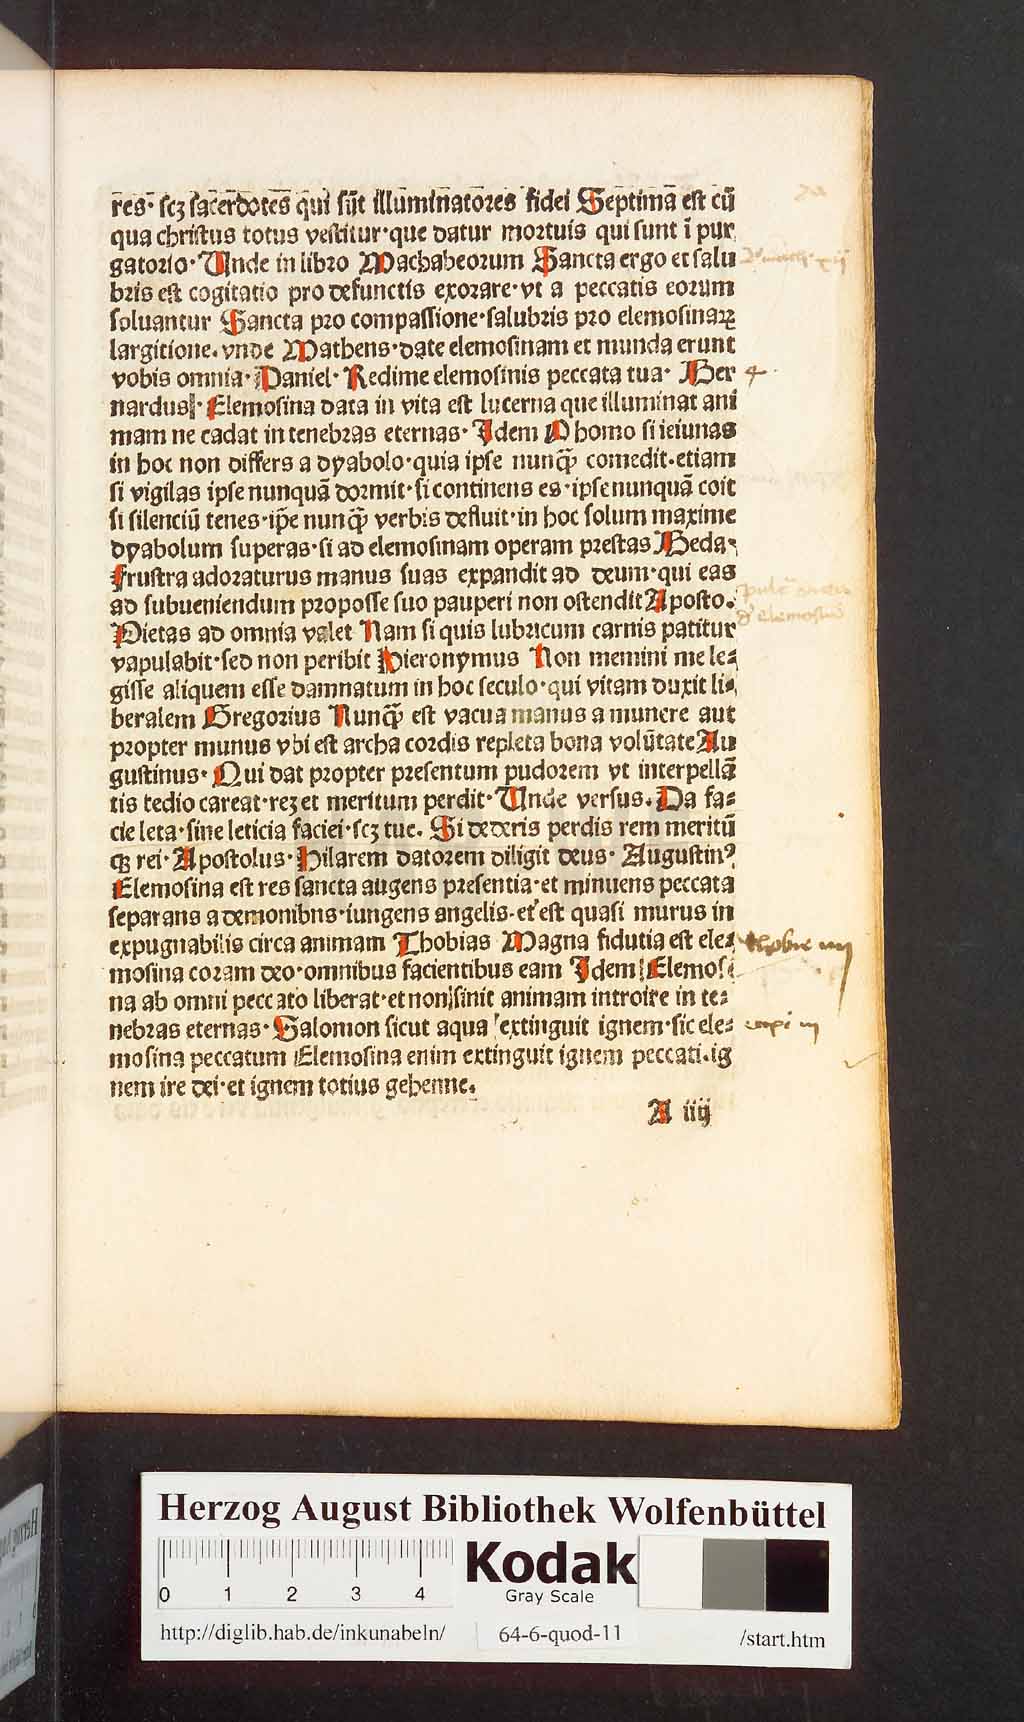 res· scz sacerdotes qui sūt illuminatores fidei Septimā est cū
qua christus totus vestitur·que datur mortuis qui sunt ī pur
gatorio· Unde in libro Machabeorum Sancta ergo et salu
bris est cogitatio pro defunctis exorare·vt a peccatis eorum
soluantur Sancta pro compassione·salubris pro elemosinaꝝ
largitione. vnde Matheus·date elemosinam et munda erunt
vobis omnia· Daniel· Redime elemosinis peccata tua· Ber
nardus· Elemosina data in vita est lucerna que illuminat ani
mam ne cadat in tenebras eternas· Idem O homo si ieiunas
in hoc non differs a dyabolo·quia ipse nunq̄ comedit.etiam
si vigilas ipse nunquā dormit·si continens es·ipse nunquā coit
si silenciū tenes·ip̄e nunq̄ verbis defluit·in hoc solum maxime
dyabolum superas·si ad elemosinam operam prestas Beda·
Frustra adoraturus manus suas expandit ad deum·qui eas
ad subueniendum proposse suo pauperi non ostendit Aposto.
Pietas ad omnia valet Nam si quis lubricum carnis patitur
vapulabit·sed non peribit Hieronymus Non memini me le⸗
gisse aliquem esse damnatum in hoc seculo·qui vitam duxit li⸗
beralem Gregorius Nunq̄ est vacua manus a munere aut
propter munus vbi est archa cordis repleta bona volūtate Au
gustinus· Qui dat propter presentum pudorem vt interpellā
tis tedio careat·rez et meritum perdit· Unde versus. Da fa⸗
cie leta·sine leticia faciei·scz tue. Si dederis perdis rem meritū
qꝫ rei· Apostolus· Hilarem datorem diligit deus· Augustinꝰ
Elemosina est res sancta augens presentia·et minuens peccata
separans a demonibns·iungens angelis·et est quasi murus in
expugnabilis circa animam Thobias Magna fidutia est ele⸗
mosina coram deo·omnibus facientibus eam Idem Elemosi
na ab omni peccato liberat·et non sinit animam introire in te⸗
nebras eternas· Salomon sicut aqua extinguit ignem·sic ele⸗
mosina peccatum Elemosina enim extinguit ignem peccati.ig
nem ire dei·et ignem totius gehenne.
A iiij
thobie iiij
Herzog August Bibliothek Wolfenbüttel
0 1 2 3 4
Kodak
Gray Scale
http://diglib.hab.de/inkunabeln/ 64-6-quod-11 /start.htm